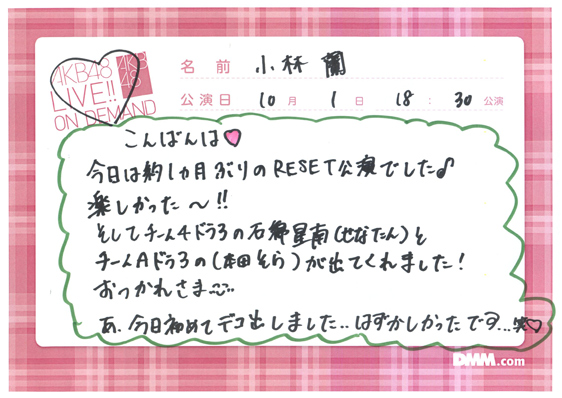 AKB48
LIVE!!
ON DEMAND
AKB
48
名前 小林 蘭
公演日 10月 1日 18:30公演
こんばんは
今日は約1ヵ月ぶりのRESET公演でした♪
楽しかった〜!!
そしてチーム4ドラ3の石郷星南(せなたん)と
チームAドラ3の(本田そら)が出てくれました!
おつかれさま
あ、今日初めてデコ出しました..はずかしかったです...笑♡
DMM.com